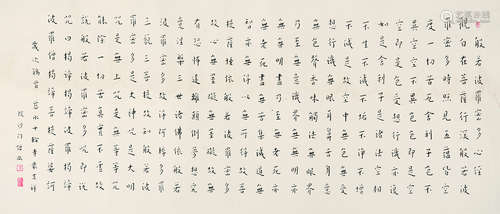 般若波羅蜜多心經
觀自在菩薩行深般若波
羅蜜多時照見五蘊皆空
度一切苦厄舍利子色不異
空空不異色色即是空空
即是色受想行識亦復如
是舍利子是諸法空相
不生不滅不垢不淨不增
不減是故空中無色無受
想行識無眼耳鼻舌身意
無色聲香味觸法無眼界
乃至無意識界無無明亦
無無明盡乃至無老死亦
無老死盡無苦集滅道無
智亦無得以無所得故菩
提薩埵依般若波羅蜜多
故心無罣礙無罣礙故無
有恐怖遠離顛倒夢想究
竟涅槃三世諸佛依般若
波羅蜜多故得阿耨多羅
三藐三菩提故知般若波
羅蜜多是大神咒是大明
咒是無上咒是無等等咒
能除一切苦真實不虛故
說般若波羅蜜多咒即說
咒曰揭諦揭諦波羅揭諦
波羅僧揭諦菩提薩婆訶